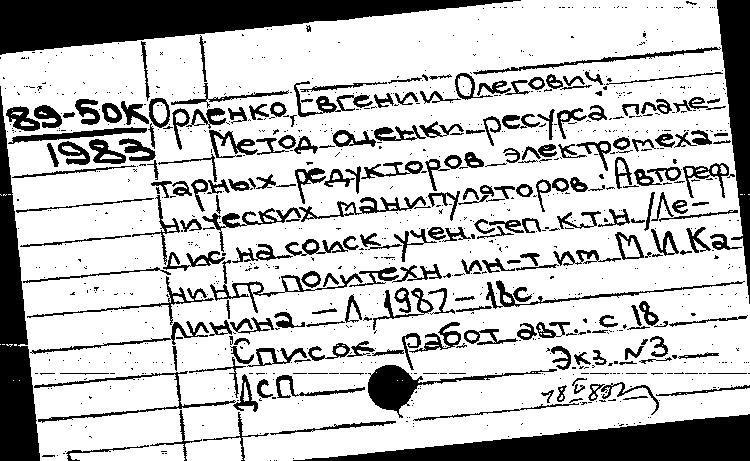 89-50К
1983
Орленко, Евгений Олегович.
Метод оценки ресурса плане-
тарных редукторов электромеха-
нических манипуляторов: Автореф.
дис. на соиск. учен. степ. к.т.н. /Ле-
нингр. политехн. ин-т им. М.И.Ка-
линина. – Л., 1987 – 18с.
Список работ авт.: с. 18.
Экз. №3
ДСП